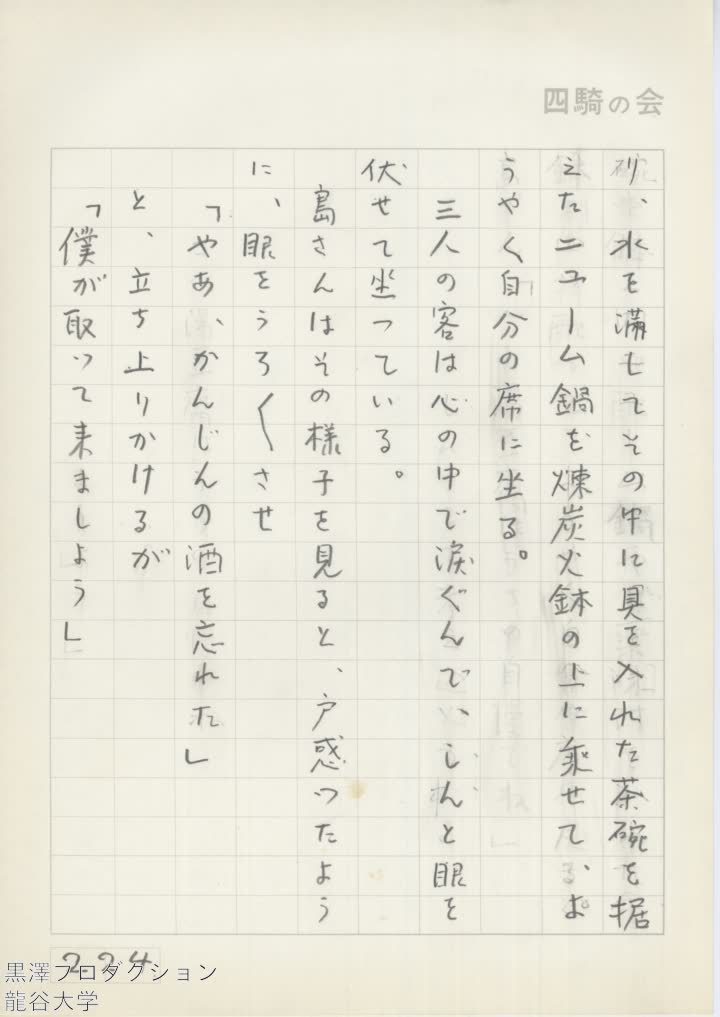 四騎の会
り、水を満してその中に具を入れた茶碗を据
えたニューム鍋を煉炭火鉢の上に乗せて、よ
うやく自分の席に坐る。
三人の客は心の中で涙ぐんで、しんと眼を
伏せて坐っている。
島さんはその様子を見ると、戸惑ったよう
に、眼をうろ〱させ
「やあ、かんじんの酒を忘れた」
と、立ち上りかけるが
「僕が取って来ましよう」
224
黒澤プロダクション
龍谷大学